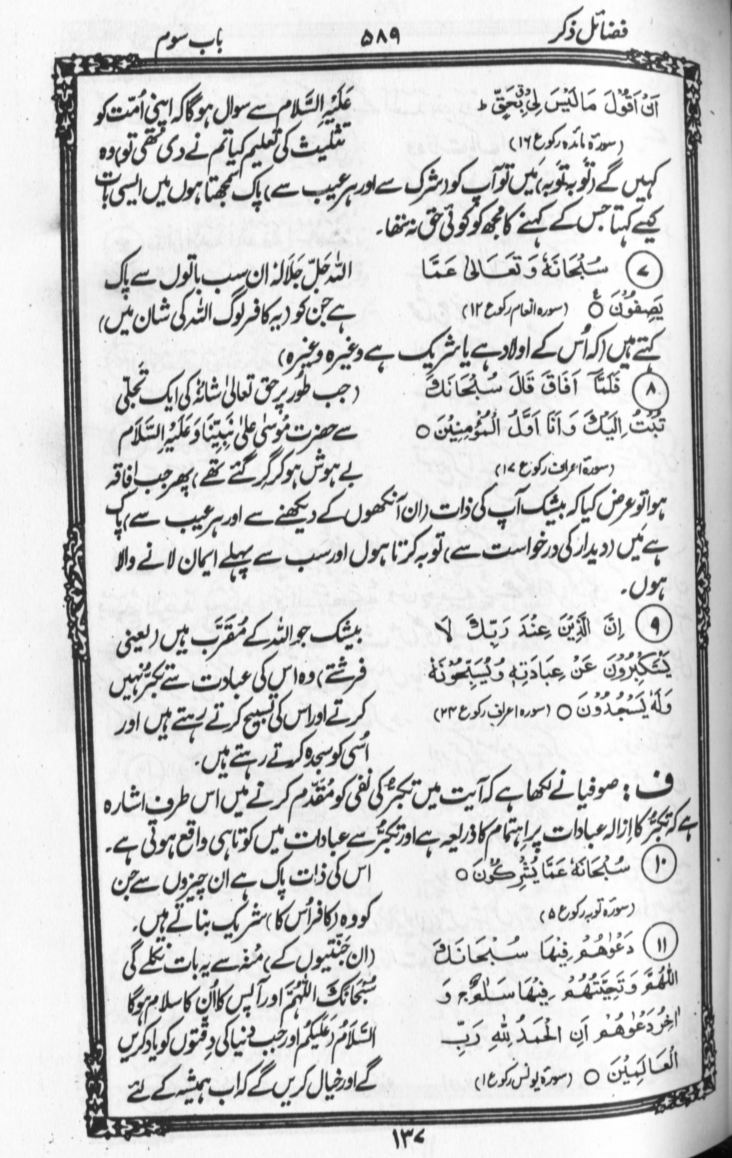 فضائل ذکر ۵۸۹ باب سوم
اَنْ اَقُوْلَ مَا لَيْسَ لِيْ بِحَقٍّ ط
(سورۃ مائدہ رکوع ۱۶)
علَیْہِ السَّلام سے سوال ہوگا کہ اپنی اُمّت کو
تثلیث کی تعلیم کیا تم نے دی تھی تو) وہ
کہیں گے (توبہ توبہ) میں تو آپ کو (شرک سے اور ہر عیب سے) پاک سمجھتا ہوں میں ایسی بات
کیسے کہتا جس کے کہنے کا مجھ کو کوئی حق نہ تھا۔
۷ سُبْحَانَهٗ وَتَعَالىٰ عَمَّا
يَصِفُوْنَ ○ (سورہ انعام رکوع ۱۲)
اللہ جَلّ جَلَالُہٗ ان سب باتوں سے پاک
ہے جن کو (یہ کافر لوگ اللہ کی شان میں)
کہتے ہیں (کہ اُس کے اولاد ہے یا شریک ہے وغیرہ وغیرہ)
۸ فَلَمَّآ اَفَاقَ قَالَ سُبْحَانَكَ
تُبْتُ اِلَيْكَ وَاَنَا اَوَّلُ الْمُؤْمِنِيْنَ ○
(سورۃ اعراف رکوع ۱۷)
(جب طور پر حق تعالیٰ شانُہٗ کی ایک تجلّی
سے حضرت مُوسیٰ علیٰ نَبِیِّنَا وَعَلَیْہِ السَّلَام
بے ہوش ہو کر گر گئے تھے) پھر جب افاقہ
ہوا تو عرض کیا کہ بیشک آپ کی ذات (ان آنکھوں کے دیکھنے سے اور ہر عیب سے) پاک
ہے میں (دیدار کی درخواست سے) توبہ کرتا ہوں اور سب سے پہلے ایمان لانے والا
ہوں۔
۹ اِنَّ الَّذِيْنَ عِنْدَ رَبِّكَ لَا
يَسْتَكْبِرُوْنَ عَنْ عِبَادَتِهٖ وَيُسَبِّحُوْنَهٗ
وَلَهٗ يَسْجُدُوْنَ ○ (سورہ اعراف رکوع ۲۴)
بیشک جو اللہ کے مُقَرَّب ہیں (یعنی
فرشتے) وہ اس کی عبادت سے تکبّر نہیں
کرتے اور اُس کی تسبیح کرتے رہتے ہیں اور
اُسی کو سجدہ کرتے رہتے ہیں۔
ف: صوفیا نے لکھا ہے کہ آیت میں تکبُّر کی نفی کو مُقَدَّم کرنے میں اس طرف اشارہ
ہے کہ تکبُّر کا اِزالہ عبادات پر اِہتمام کا ذریعہ ہے اور تکبُّر سے عبادات میں کوتاہی واقع ہوتی ہے۔
۱۰ سُبْحَانَهٗ عَمَّا يُشْرِكُوْنَ ○
(سورۃ توبہ رکوع ۵)
اس کی ذات پاک ہے ان چیزوں سے جن
کو وہ (کافر اُس کا) شریک بناتے ہیں۔
۱۱ دَعْوٰهُمْ فِيْهَا سُبْحَانَكَ
اللّٰهُمَّ وَتَحِيَّتُهُمْ فِيْهَا سَلٰمٌ ج وَ
اٰخِرُ دَعْوٰهُمْ اَنِ الْحَمْدُ لِلّٰهِ رَبِّ
الْعَالَمِيْنَ ○ (سورۃ یونس رکوع ۱)
(ان جنّتیوں کے) مُنہ سے یہ بات نکلے گی
سُبْحَانَكَ اللّٰهُمَّ اور آپس کا اُن کا سلام ہوگا
السَّلَامُ عَلیکم اور جب دنیا کی دِقّتوں کو یاد کریں
گے اور خیال کریں گے کہ اب ہمیشہ کے لئے
۱۳۷